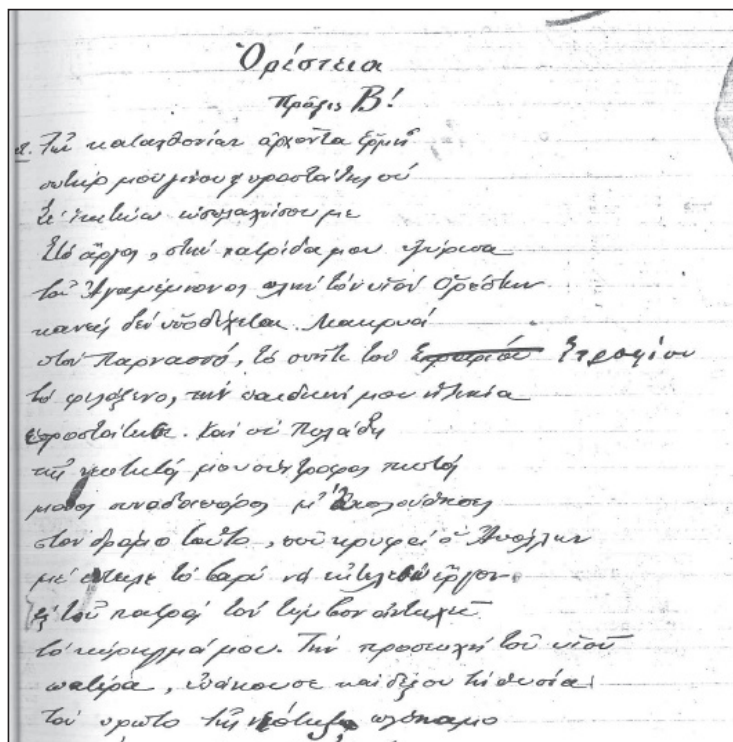 Ὀρέστεια
Πρᾶξις Β!
Τῶν καταχθονίων ἄρχοντα Ἑρμῆ
σωτήρ μου γίνου προστάτης σύ
Σὲ ἱκετεύω εἰσπλαχνίσου με
Στὸ Ἄργος, στὴν πατρίδα μου γύρισα
τοῦ Ἀγαμέμνονος πλὴν τὸν υἱὸν Ὀρέστην
κανεὶς δὲν ὑποδέχεται. Μακρυά
στὸν Παρνασσό, τὸ σπῆτι τοῦ Στροφίου
τὸ φιλόξενο, τὴν παιδική μου ἡλικία
προστάτευσε. Καὶ σὺ Πυλάδη
τῆς νεότητός μου σύντροφος πιστός
μόνος συνοδοιπόρος μ' ἀκολούθησες
στὸν δρόμο τοῦτο, ποὺ κρυφὰ ὁ Ἀπόλλων
μὲ ἔστειλε τὸ βαρὺ νὰ ἐκτελέσω ἔργον
τοῦ πατρὸς τὸν τύμβον ἀντηχεῖ
τὸ κήρυγμά μου. Τὴν προσευχὴ τοῦ υἱοῦ
πατέρα, ὑπάκουσε καὶ δέξου τὴ θυσία
τὸν πρῶτο τῆς νεότητος πλόκαμο